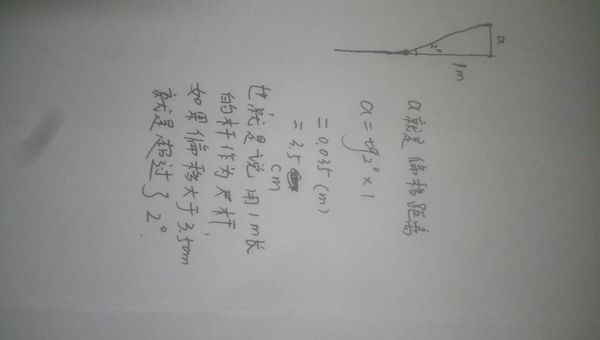 a
2°
1m
a就是偏移距离
a=tg2°×1
=0.035(m)
=3.5
cm
也就是说用1m长
的杆作为尺杆,
如果偏移大于3.5cm
就是超过了2°.